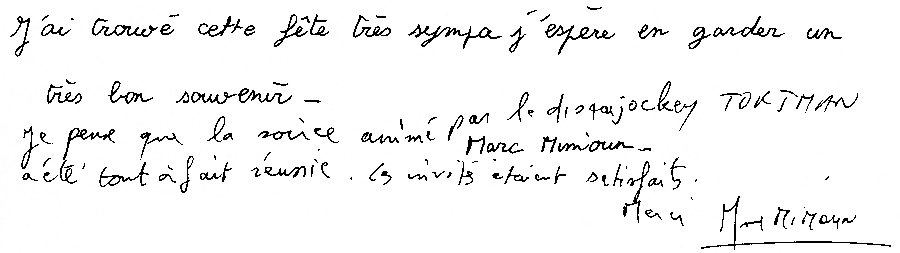 J'ai trouvé cette fête très sympa j'espère en garder un
très bon souvenir -
Je pense que la soirée animé par le disquejockey TOKTMAN
Marc Mimoun -
a été tout à fait réussie. Les invités étaient satisfaits.
Merci Mme MIMOUN